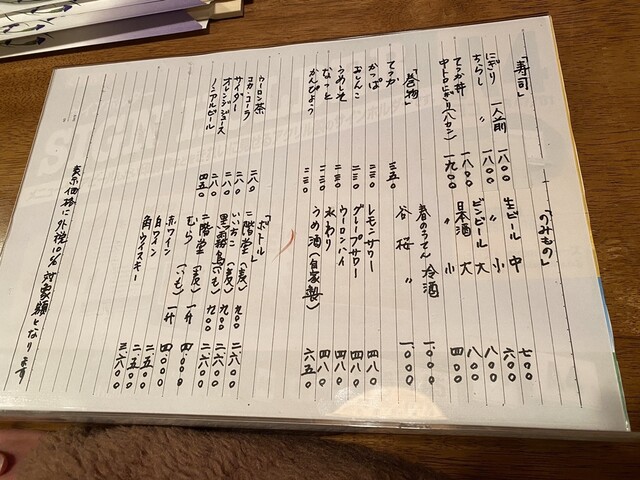 「寿司」
にぎり 一人前 一八〇〇
ちらし 〃 一八〇〇
てっか丼 一八〇〇
中トロにぎり(八カン) 一九〇〇
「巻物」
てっか 三五〇
かっぱ 二三〇
おしんこ 二三〇
うめしそ 二三〇
なっと 二三〇
かんぴょう 二三〇
ウーロン茶 二八〇
コカ・コーラ 二八〇
サイダー 二八〇
オレンジジュース 二八〇
ノンアルビール 四五〇
「のみもの」
生ビール 中 七〇〇
〃 小 六〇〇
ビンビール 大 八〇〇
日本酒 大 八〇〇
〃 小 四〇〇
春のうてん 冷酒 一、〇〇〇
谷桜 〃 一、〇〇〇
レモンサワー 四八〇
グレープサワー 四八〇
ウーロンハイ 四八〇
水わり 四八〇
うめ酒(自家製) 六五〇
「ボトル」
二階堂(麦) 九〇〇 二、六〇〇
いいちこ(麦) 九〇〇 二、六〇〇
黒霧島(いも) 九〇〇 二、六〇〇
二階堂(麦) 一升 四、〇〇〇
(いも) 一升 四、〇〇〇
赤ワイン 二、五〇〇
白ワイン 二、五〇〇
角ウイスキー 三、六〇〇
表示価格に外税10%対象額となります